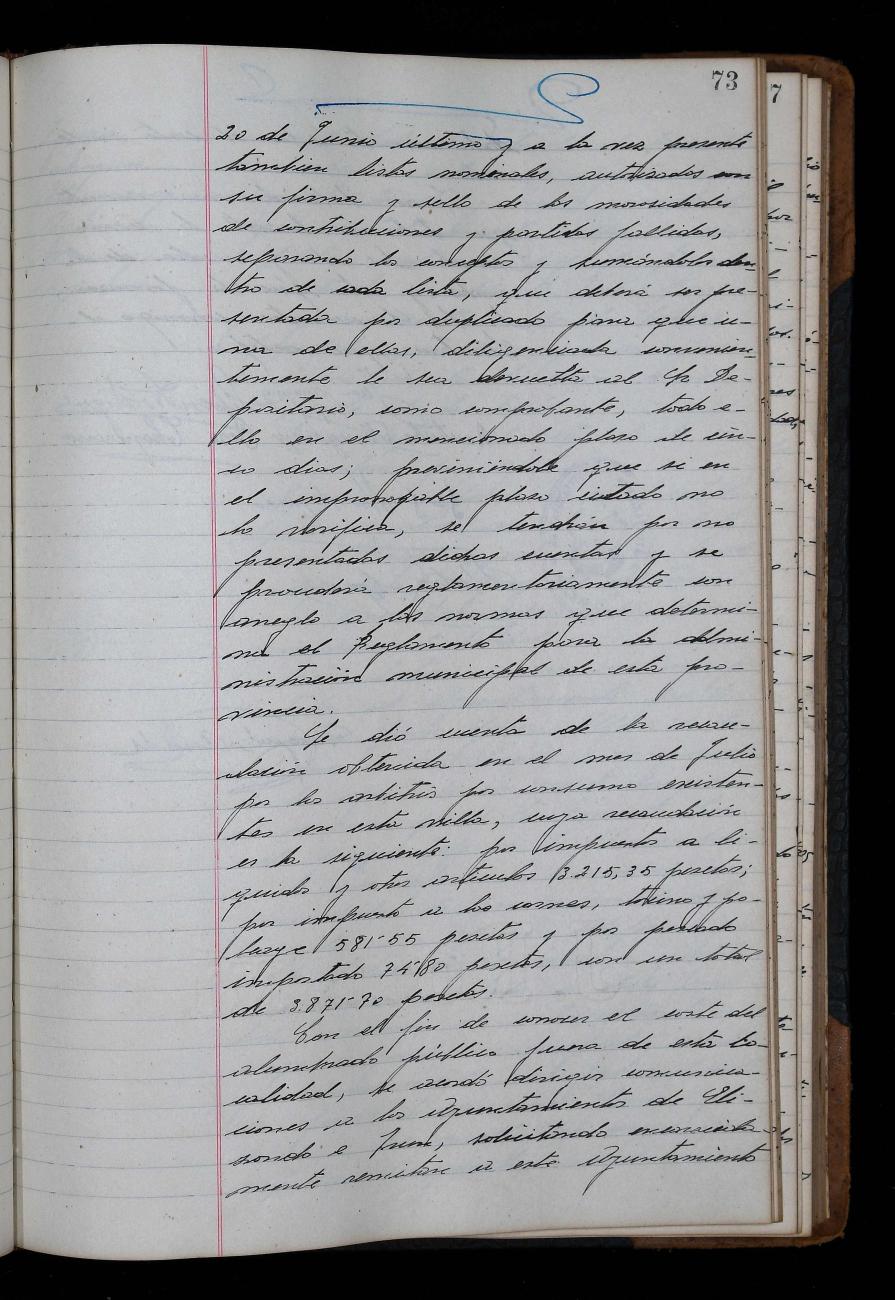 73
20 de Junio último y a la vez presente
tambien listas nominales, autorizadas con
su firma y sello de las morosidades
de contribuciones y partidas fallidas,
separando los conceptos y sumándolos den-
tro de cada lista, que deberá ser pre-
sentada por duplicado para que u-
na de ellas, diligenciada convenien-
temente le sea devuelta al Sr De-
positario, como comprobante, todo e-
llo en el mencionado plazo de cin-
co dias; previniéndole que si en
el improrrogable plazo citado no
lo verifica, se tendrán por no
presentadas dichas cuentas y se
procederá reglamentariamente con
arreglo a las normas que determi-
na el Reglamento para la admi-
nistración municipal de esta pro-
vincia.
Se dió cuenta de la recau-
dación obtenida en el mes de Julio
por los arbitrios por consumo existen-
tes en esta villa, cuya recaudación
es la siguiente: por impuestos a li-
quidos y otros articulos 3.215,35 pesetas;
por impuesto a las carnes, tocino y po-
laje 581'55 pesetas y por pescado
importado 74'80 pesetas, con un total
de 3.871'70 pesetas.
Con el fin de conocer el coste del
alumbrado público fuera de esta lo-
calidad, se acordó dirigir comunica-
ciones a los Ayuntamientos de Eli-
zondo e Irun, solicitando encarecida-
mente remitan a este Ayuntamiento
7